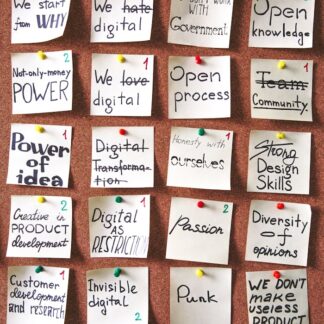 We start
from WHY
We hate
digital
WITH
Government
Open
knowledge
2
Not-only-money
POWER
We love
digital
1
Open
process
Team
Community
1
Power
of
idea
1
Digital
Transforma-
tion
Honesty with
ourselves
1
Strong
Design
Skills
2
Creative in
PRODUCT
development
Digital
AS
RESTRICTION
1
Passion
2
Diversity
of
opinions
1
Customer
development
and research
Invisible
digital
2
Punk
WE DON'T
MAKE
USELESS
PRODUCT